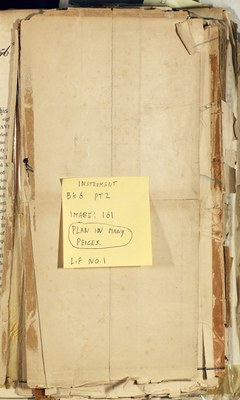 INSTRUMENT
Bk 6 pt 2
IMAGE: 161
PLAN IN MANY
PEICES.
L-F NO.1